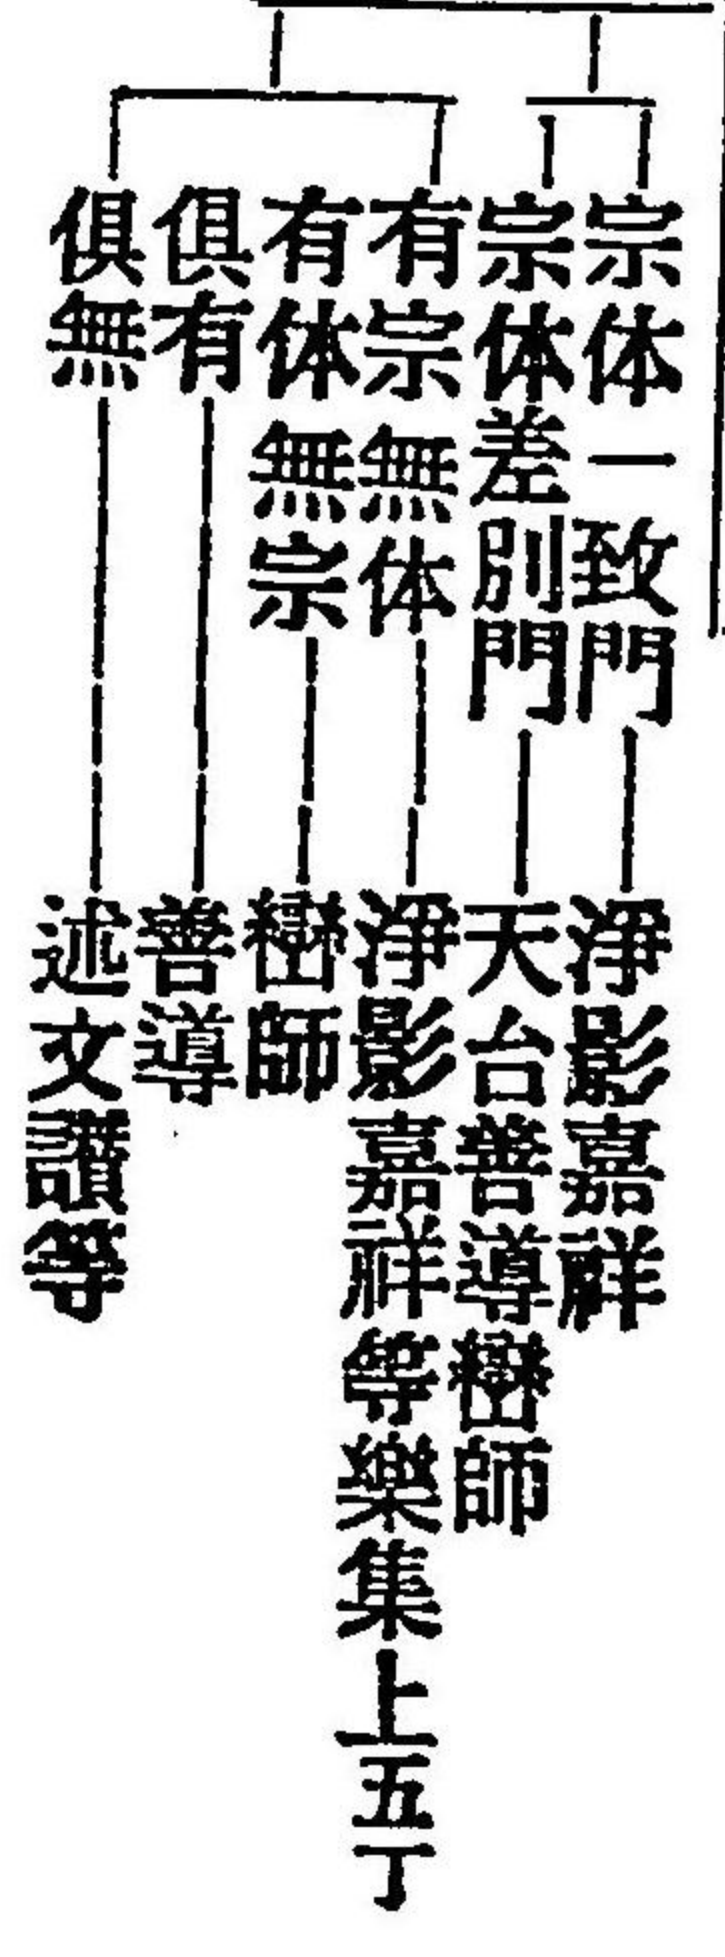 宗体一致門 淨影嘉祥
宗体差別門 天台善導巒師
有宗無体 淨影嘉祥等樂集上五丁
有体無宗 巒師
俱有 善導
俱無 述文讃等